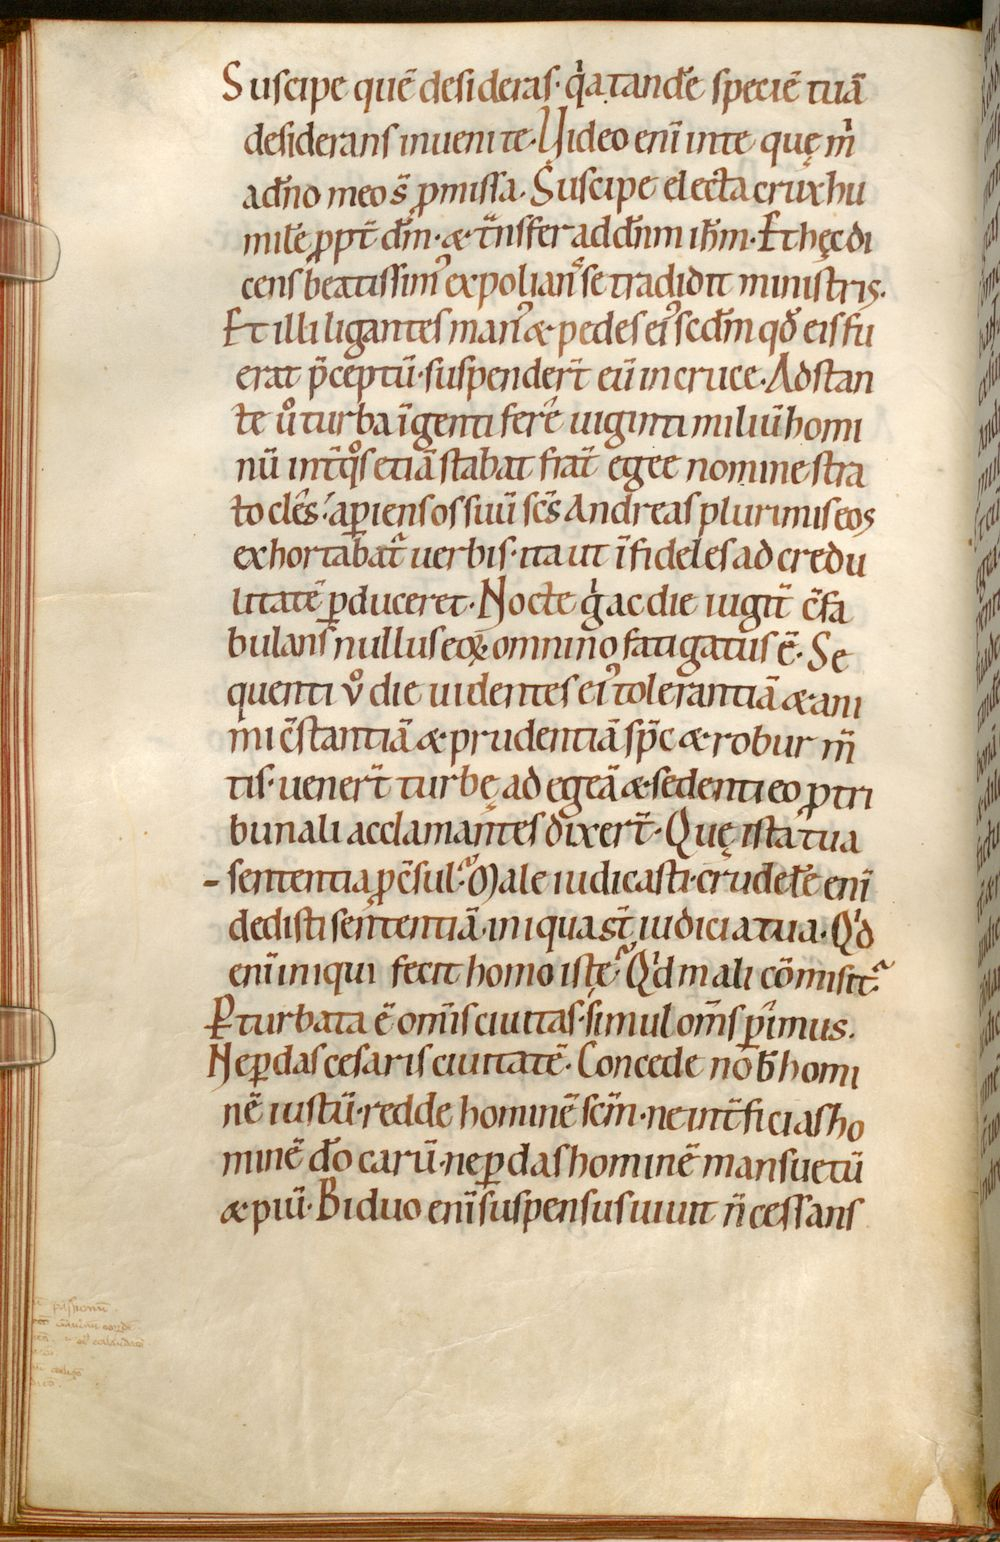 Suscipe quē desideras· qͥa tandē speciē tuā
desiderans inueni te· Video enī in te quę m̄
a dn̄o meo s̄ ꝓmissa· Suscipe electa crux hu
milē ꝓpt̄ dm̄· & tͣnsfer ad dn̄m ih̄m· Et hęc di
cens beatissimꝰ expolianˢ se tradidit ministris·
Et illi ligantes manꝰ & pedes eiꝰ scdm̄ qd̄ eis fu
erat p̄ceptū· suspender̄t eū in cruce· Adstan
te uͦ turba īgenti ferē uiginti miliū homi
nū int̄ qͦs etiā stabat frāt egee nomine stra
tocles· aꝑiens os suū sc̄s Andreas plurimis eos
exhortabatᷣ uerbis· ita ut īfideles ad credu
litatē ꝑduceret· Nocte g̍ ac die iugit̄ c̄fa
bulans nullus eoꝝ omnino fatigatus ē· Se
quenti vͦ die uidentes eiꝰ tolerantiā & ani
mi c̄stantiā & prudentiā sp̄c & robur m̄
tis· uener̄t turbę ad egeā & sedenti eo ꝓ tri
bunali acclamantes dixer̄t· Quę ista tua
sententia ꝓc̄sul· Male iudicasti· crudelē enī
dedisti sententiā· iniqua st̄ iudicia tua· Qͥd
enī iniqui fecit homo iste· Qͥd mali cōmisit·
Ꝑturbata ē om̄is ciuitas· simul om̄s ꝑimus·
Ne ꝑdas cesaris ciuitatē· Concede nob̄ homi
nē iustū· redde hominē scm̄· ne int̄ficias ho
minē dō carū· ne ꝑdas hominē mansuetū
& piū· Biduo enī suspensus uiuit n̄ cessans